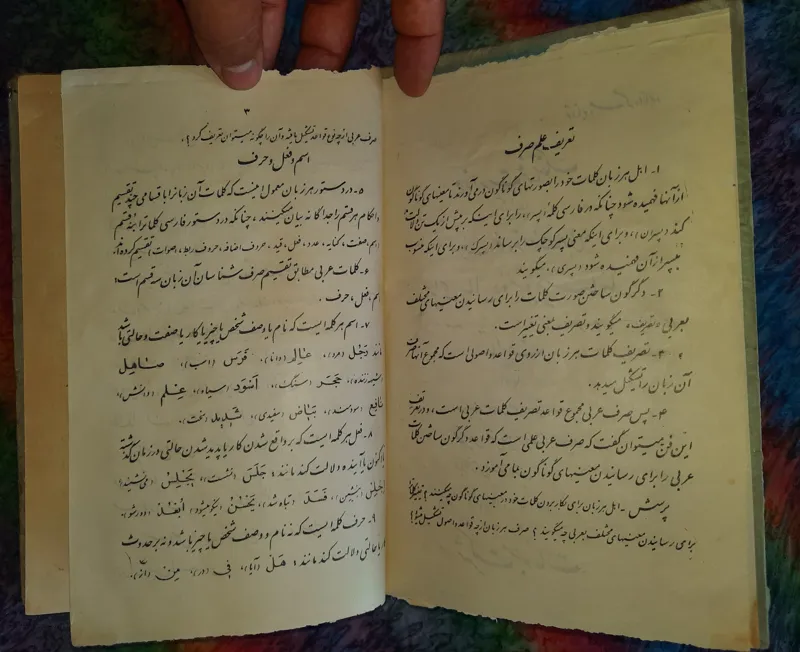 تعریف علم صرف
۱- اهل هر زبان کلمات خود را بصورتهای گوناگون درمی‌آورند تا معنیهای گوناگون
از آنها فهمیده شود چنانکه در فارسی کلمه (پسر) را برای اینکه بر بیش از یک تن دلالت
کند (پسران)، و برای اینکه معنی پسر کوچک را برساند (پسرک)، و برای اینکه منسوب
بپسر از آن فهمیده شود (پسری)، میگویند
۲- دگرگون ساختن صورت کلمات را برای رسانیدن معنیهای مختلف
بعربی «تصریف» میگویند و تصریف بمعنی تغییر است.
۳- تصریف کلمات هر زبان از روی قواعد و اصولی است که مجموع آنها صرف
آن زبان را تشکیل میدهد.
۴- پس صرف عربی مجموع قواعد تصریف کلمات عربی است، و در تعریف
این فن میتوان گفت که صرف عربی علمی است که قواعد دگرگون ساختن کلمات
عربی را برای رسانیدن معنیهای گوناگون بما می‌آموزد.
پرسش - اهل هر زبان برای بکار بردن کلمات خود در معنیهای گوناگون چه میکنند؟ تغییر کلمه
برای رسانیدن معنیهای مختلف بعربی چه میگویند؟ صرف هر زبان از چه قواعد و اصولی تشکیل میشود؟
۳
صرف عربی از چه نوع قواعد تشکیل یافته و آن را چگونه میتوان تعریف کرد؟.
اسم و فعل و حرف
۵- در دستور هر زبان معمول اینست که کلمات آن زبان را باقسامی چند تقسیم
و احکام هر قسم را جداگانه بیان میکنند، چنانکه در دستور فارسی کلمات را به نه قسم
اسم، صفت، کنایه، عدد، فعل، قید، حروف اضافه، حروف ربط، اصوات تقسیم کرده‌اند.
۶- کلمات عربی مطابق تقسیم صرف شناسان آن زبان سه قسم است:
اسم، فعل، حرف.
۷- اسم هر کلمه ایست که نام یا وصف شخص یا چیز یا کار یا صفت و حالتی باشد
مانند رَجُل (مرد)، عالِم (دانا)، فَرَس (اسب)، صاهِل
(شیهه زننده)، حَجَر (سنگ)، اَسْوَد (سیاه)، عِلم (دانش)،
نافِع (سودمند)، بَیاض (سفیدی)، شَدید (سخت).
۸- فعل هر کلمه ایست که بر واقع شدن کار یا پدید شدن حالتی در زمان گذشته
یا کنون یا آینده دلالت کند مانند: جَلَسَ (نشست)، یَجْلِسُ (می‌نشیند)،
اِجْلِسْ (بنشین)، فَسَدَ (تباه شد)، یَحْسُنُ (نیکو میشود)، اُبْعُدْ (دور شو).
۹- حرف کلمه ایست که نه نام و وصف شخص یا چیز باشد و نه بر حدوث
کار یا حالتی دلالت کند مانند: هَلْ (آیا)، فی (در)، مِن (از).